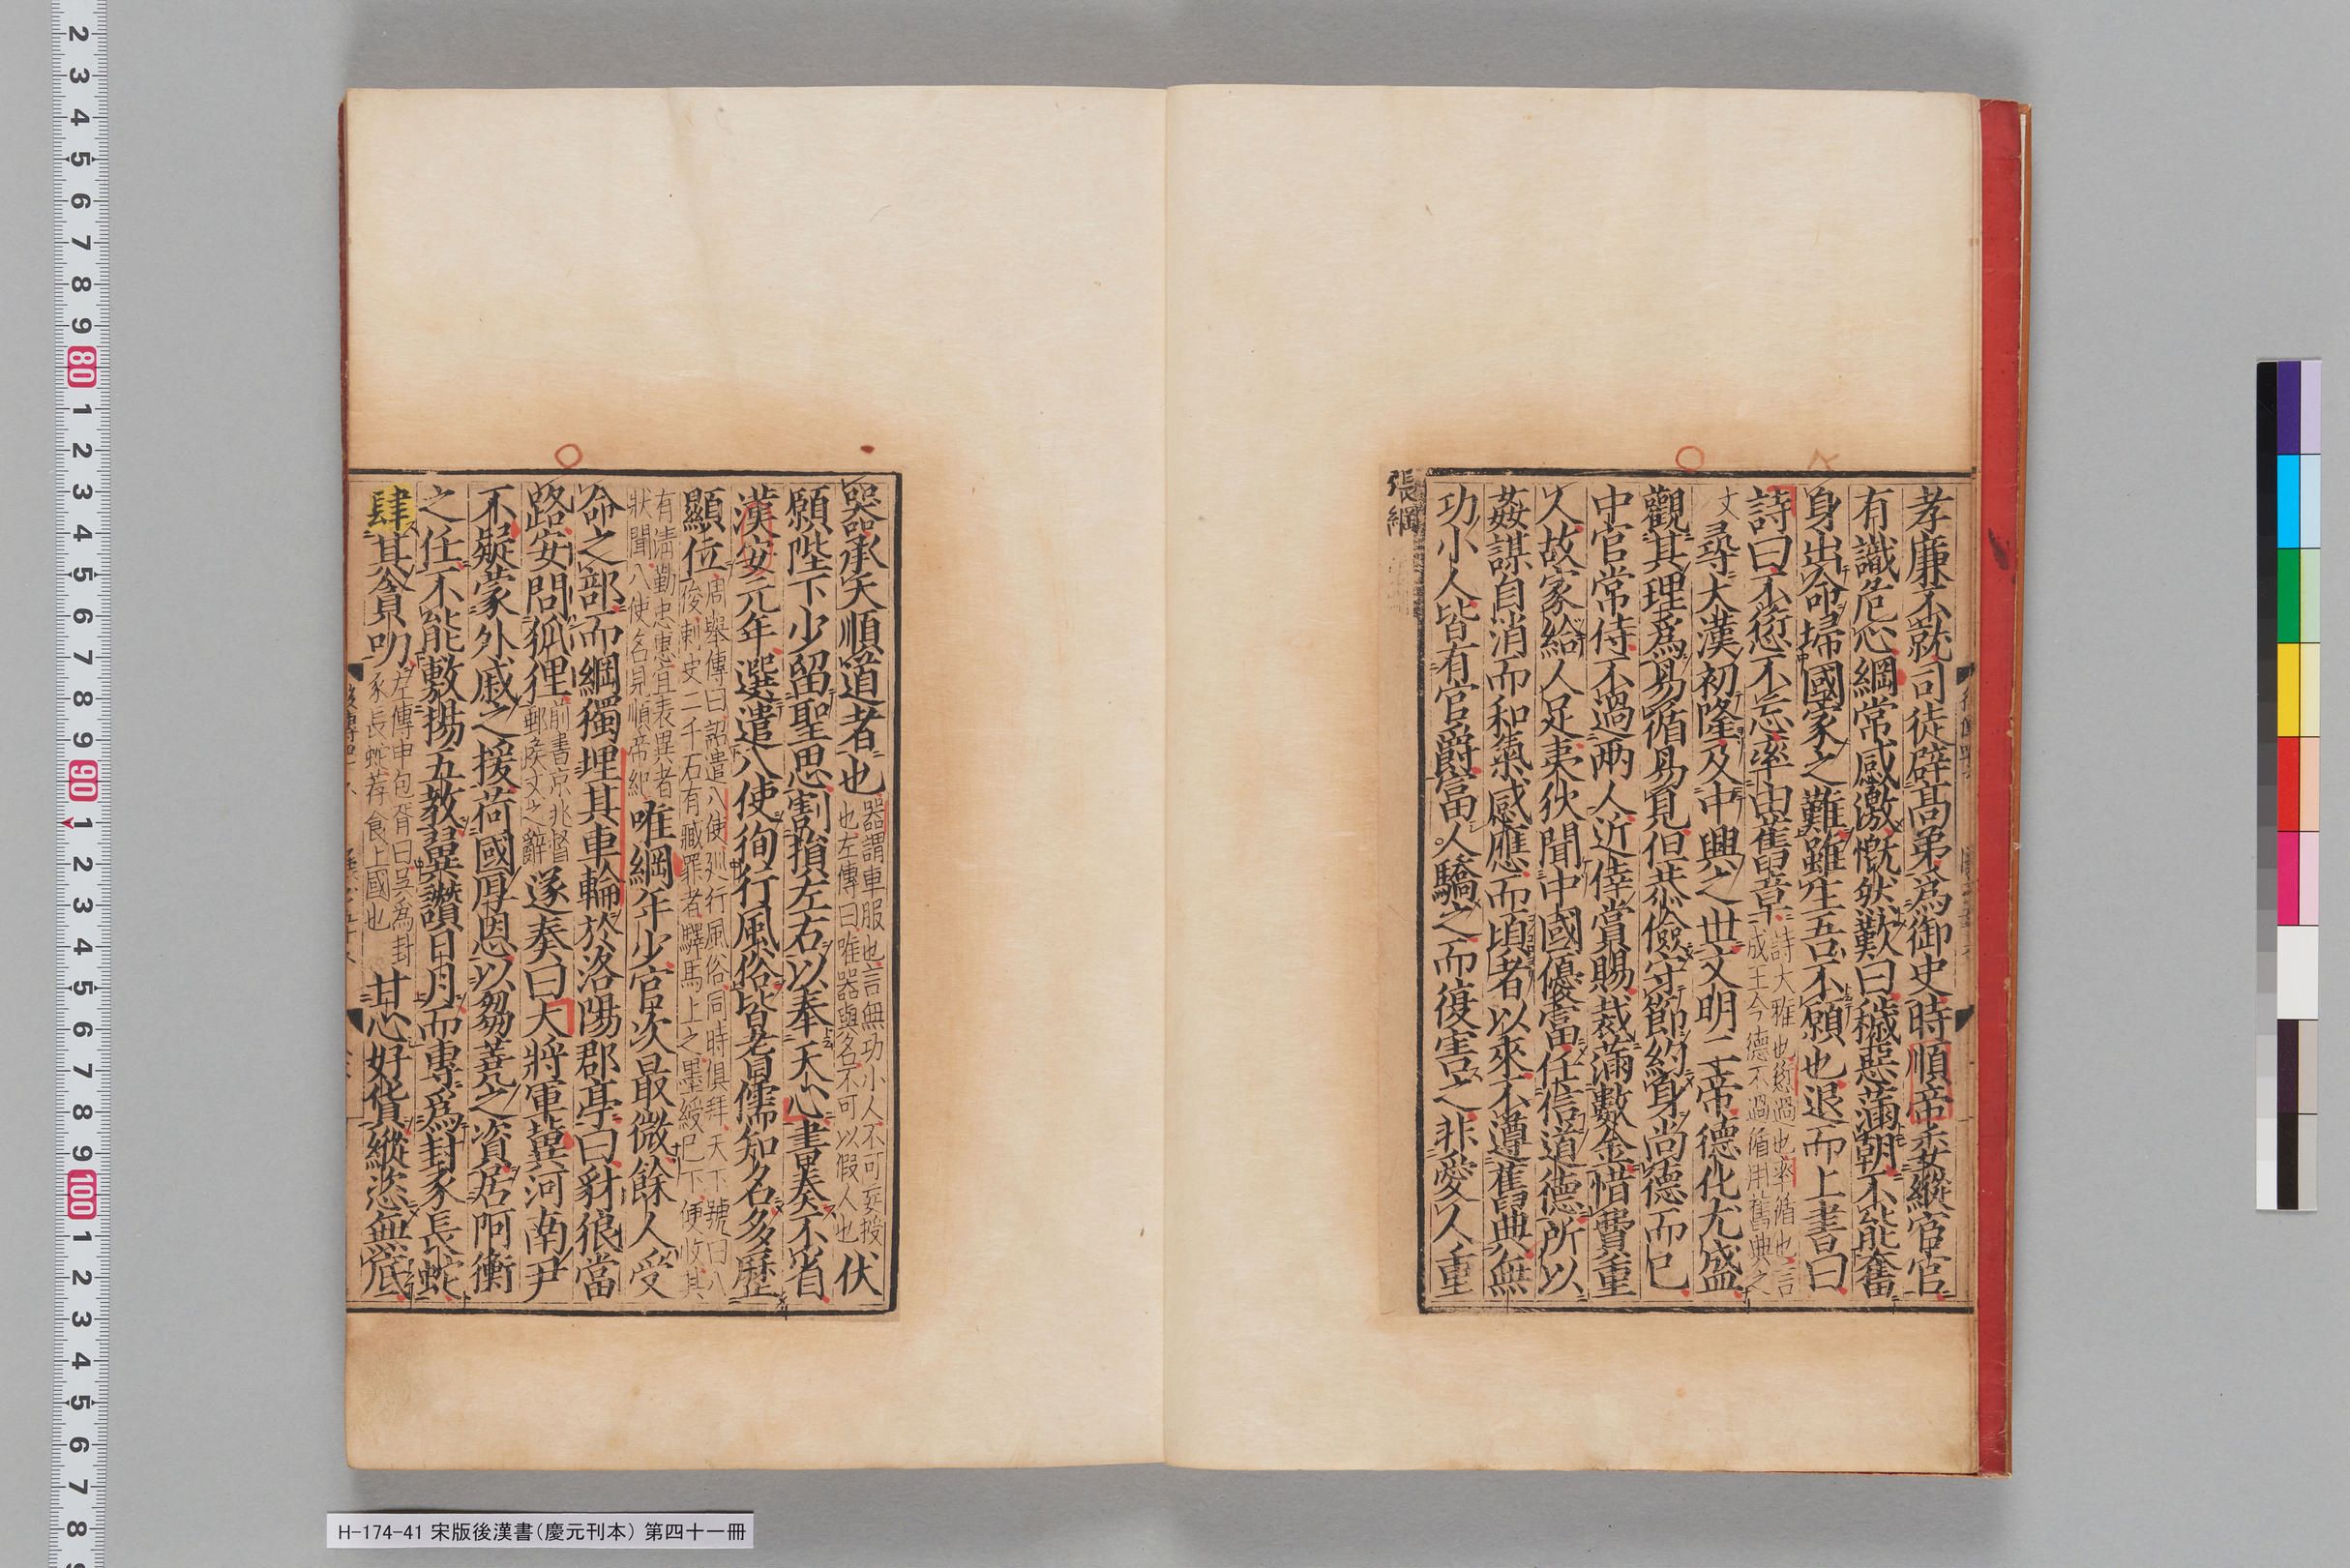 孝廉不就司徒辟高弟為御史時順帝委縱宦官
有識危心綱常感激慨然歎曰穢惡滿朝不能奮
身出命埽國家之難雖生吾不願也退而上書曰
詩曰不愆不忘率由舊章
詩大雅也愆過也率循也言
成王令德不過循用舊典之
文
尋大漢初隆及中興之世文明二帝德化尤盛
觀其理為易循易見但恭儉守節約身尚德而已
中官常侍不過兩人近倖賞賜裁滿數金惜費重
人故家給人足夷狄聞中國優富任信道德所以
姦謀自消而和氣感應而頃者以來不遵舊典無
功小人皆有官爵富人驕之而復害之非愛人重
張綱
器承天順道者也
器謂車服也言無功小人不可妄授
也左傳曰唯器與名不可以假人也
伏
願陛下少留聖思割損左右以奉天心書奏不省
漢安元年選遣八使徇行風俗皆耆儒知名多歷
顯位
周舉傳曰詔遣八使巡行風俗同時俱拜天下號曰八
俊刺史二千石有臧罪者驛馬上之墨綬已下便收其
有清勤忠惠宜表異者
狀聞八使名見順帝紀
唯綱年少官次最微餘人受
命之部而綱獨埋其車輪於洛陽都亭曰豺狼當
路安問狐狸
前書京兆督
郵侯文之辭
遂奏曰大將軍冀河南尹
不疑蒙外戚之援荷國厚恩以芻蕘之資居阿衡
之任不能敷揚五教翼讚日月而專為封豕長蛇
肆其貪叨
左傳申包胥曰吳為封
豕長蛇荐食上國也
甘心好貨縱恣無底
H-174-41 宋版後漢書(慶元刊本) 第四十一冊